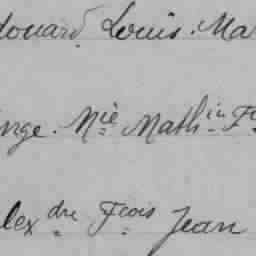 douard Louis. Ma
inge. Mie Mathin F
lex dre Fcois Jean